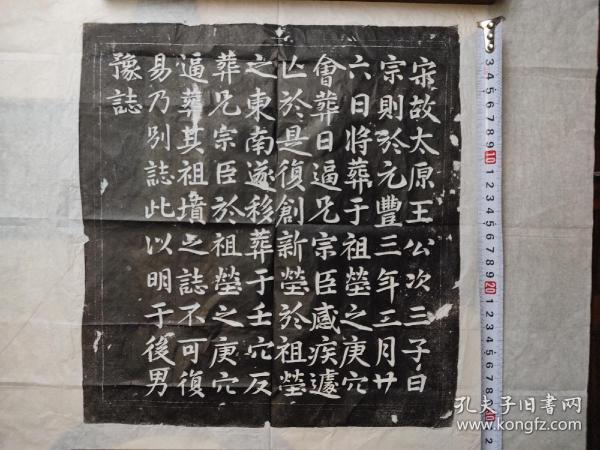 宋故太原王公次三子曰
宗則於元豐三年三月廿
六日將葬于祖塋之庚穴
會葬日逼兄宗臣感疾遽
亾於是復創新塋於祖塋
之東南遂移葬于壬穴反
葬兄宗臣於祖塋之庚穴
逼葬其祖墳之誌不可復
易乃别誌此以明于後男
豫誌
孔夫子旧书网
www.kongfz.com